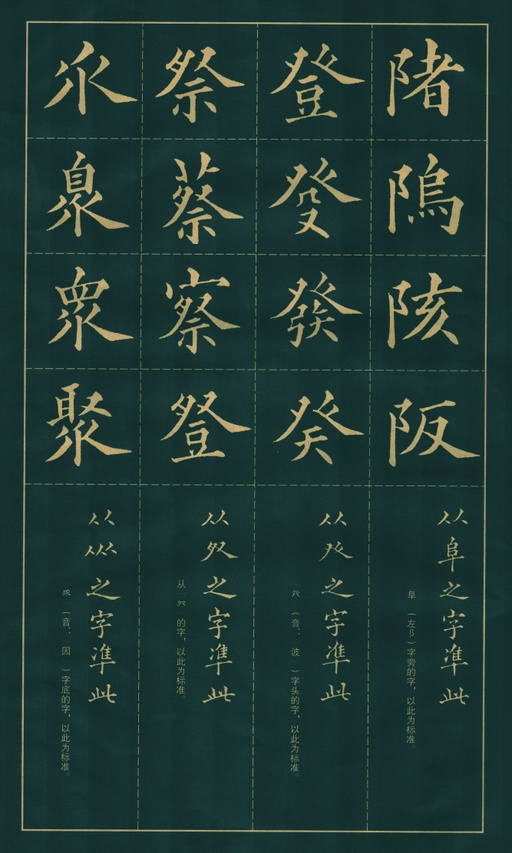 陼
隖
陔
阪
从阜之字準此
阜（左阝）字旁的字，以此为标准。
登
發
癸
从癶之字準此
癶（音、波）字头的字，以此为标准。
祭
蔡
察
从之字準此
从的字，以此为标准。
乑
衆
聚
从乑之字準此
乑（音、因）字底的字，以此为标准。